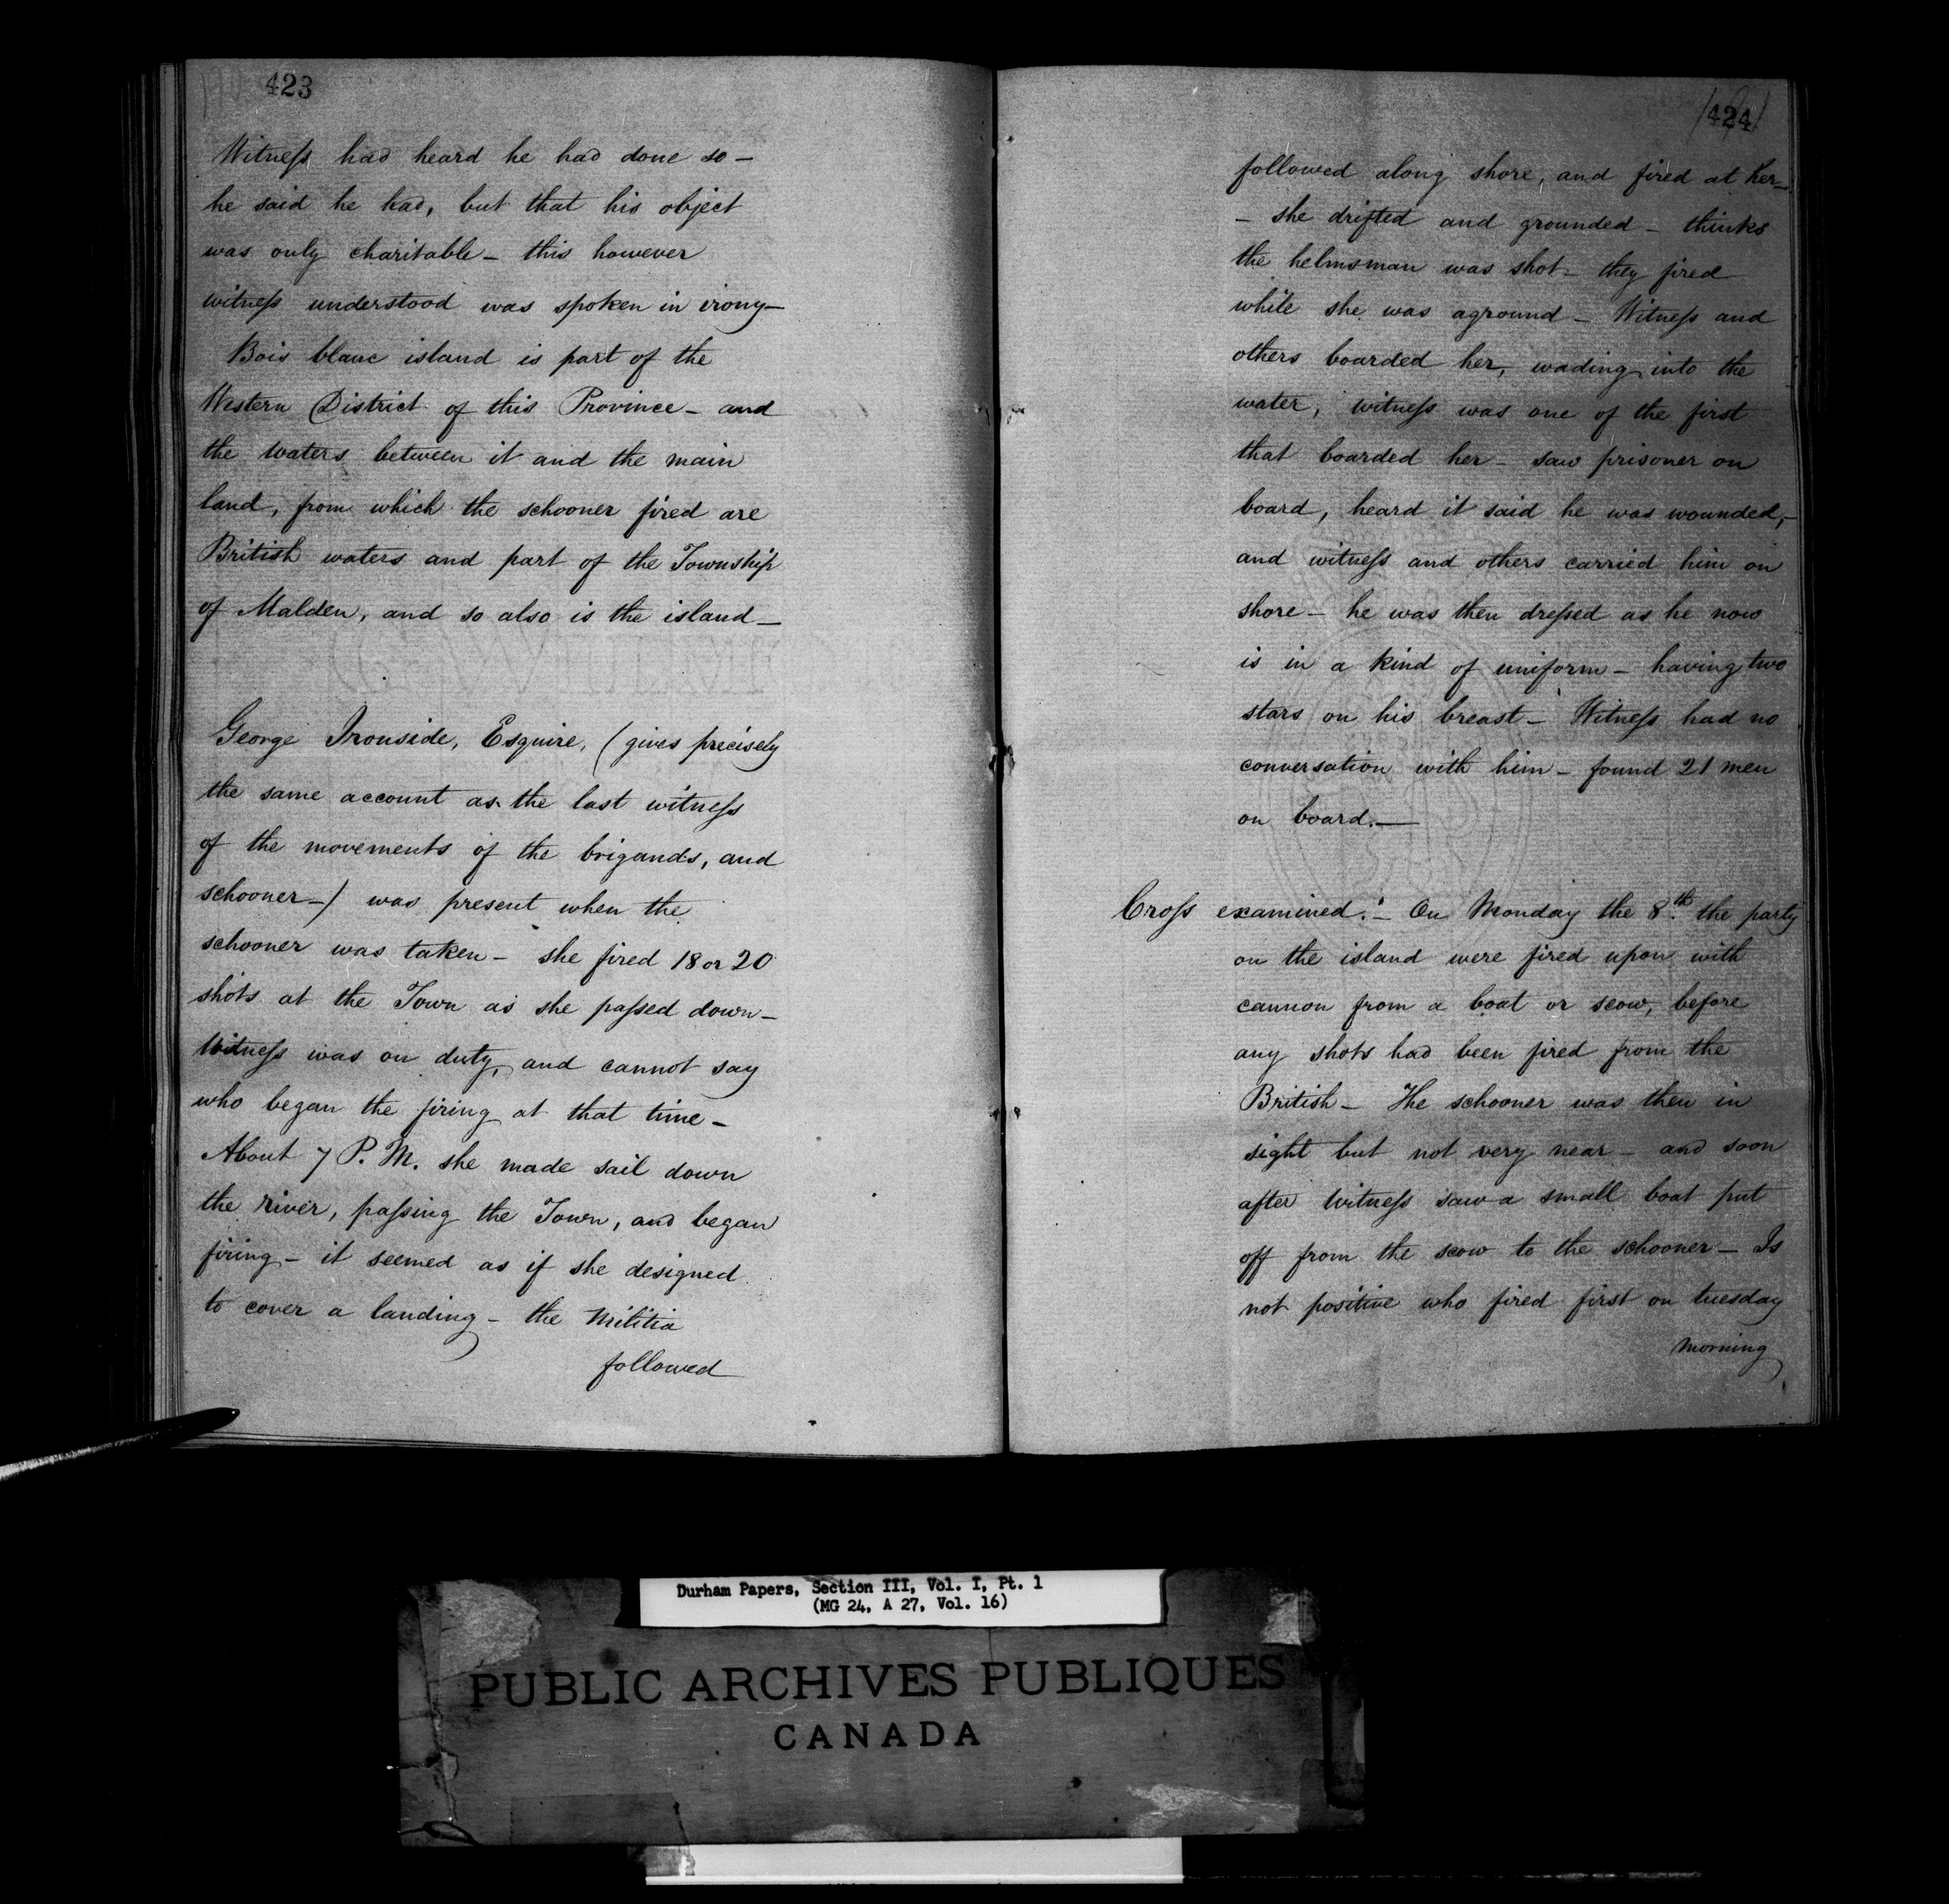 423
Witness had heard he had done so —
he said he had, but that his object
was only charitable — this however
witness understood was spoken in irony —
Bois blanc island is part of the
Western District of this Province — and
the waters between it and the main
land, from which the schooner fired are
British waters and part of the Township
of Malden, and so also is the island —
George Ironside, Esquire, (gives precisely
the same account as the last witness
of the movements of the brigands, and
schooner —) was present when the
schooner was taken — she fired 18 or 20
shots at the Town as she passed down —
Witness was on duty, and cannot say
who began the firing at that time —
About 7 P. M. she made sail down
the river, passing the Town, and began
firing — it seemed as if she designed
to cover a landing — the Militia
followed
424
followed along shore, and fired at her —
— she drifted and grounded — thinks
the helmsman was shot — they fired
while she was aground — Witness and
others boarded her, wading into the
water, witness was one of the first
that boarded her — saw prisoner on
board, heard it said he was wounded, —
and witness and others carried him on
shore — he was then dressed as he now
is in a kind of uniform — having two
stars on his breast — Witness had no
conversation with him — found 21 men
on board. —
Cross examined. — On Monday the 8th. the party
on the island were fired upon with
cannon from a boat or scow, before
any shots had been fired from the
British — The schooner was then in
sight but not very near — and soon
after Witness saw a small boat put
off from the scow to the schooner — Is
not positive who fired first on tuesday
morning
Durham Papers, Section III, Vol. I, Pt. 1
(MG 24, A 27, Vol. 16)
PUBLIC ARCHIVES PUBLIQUES
CANADA